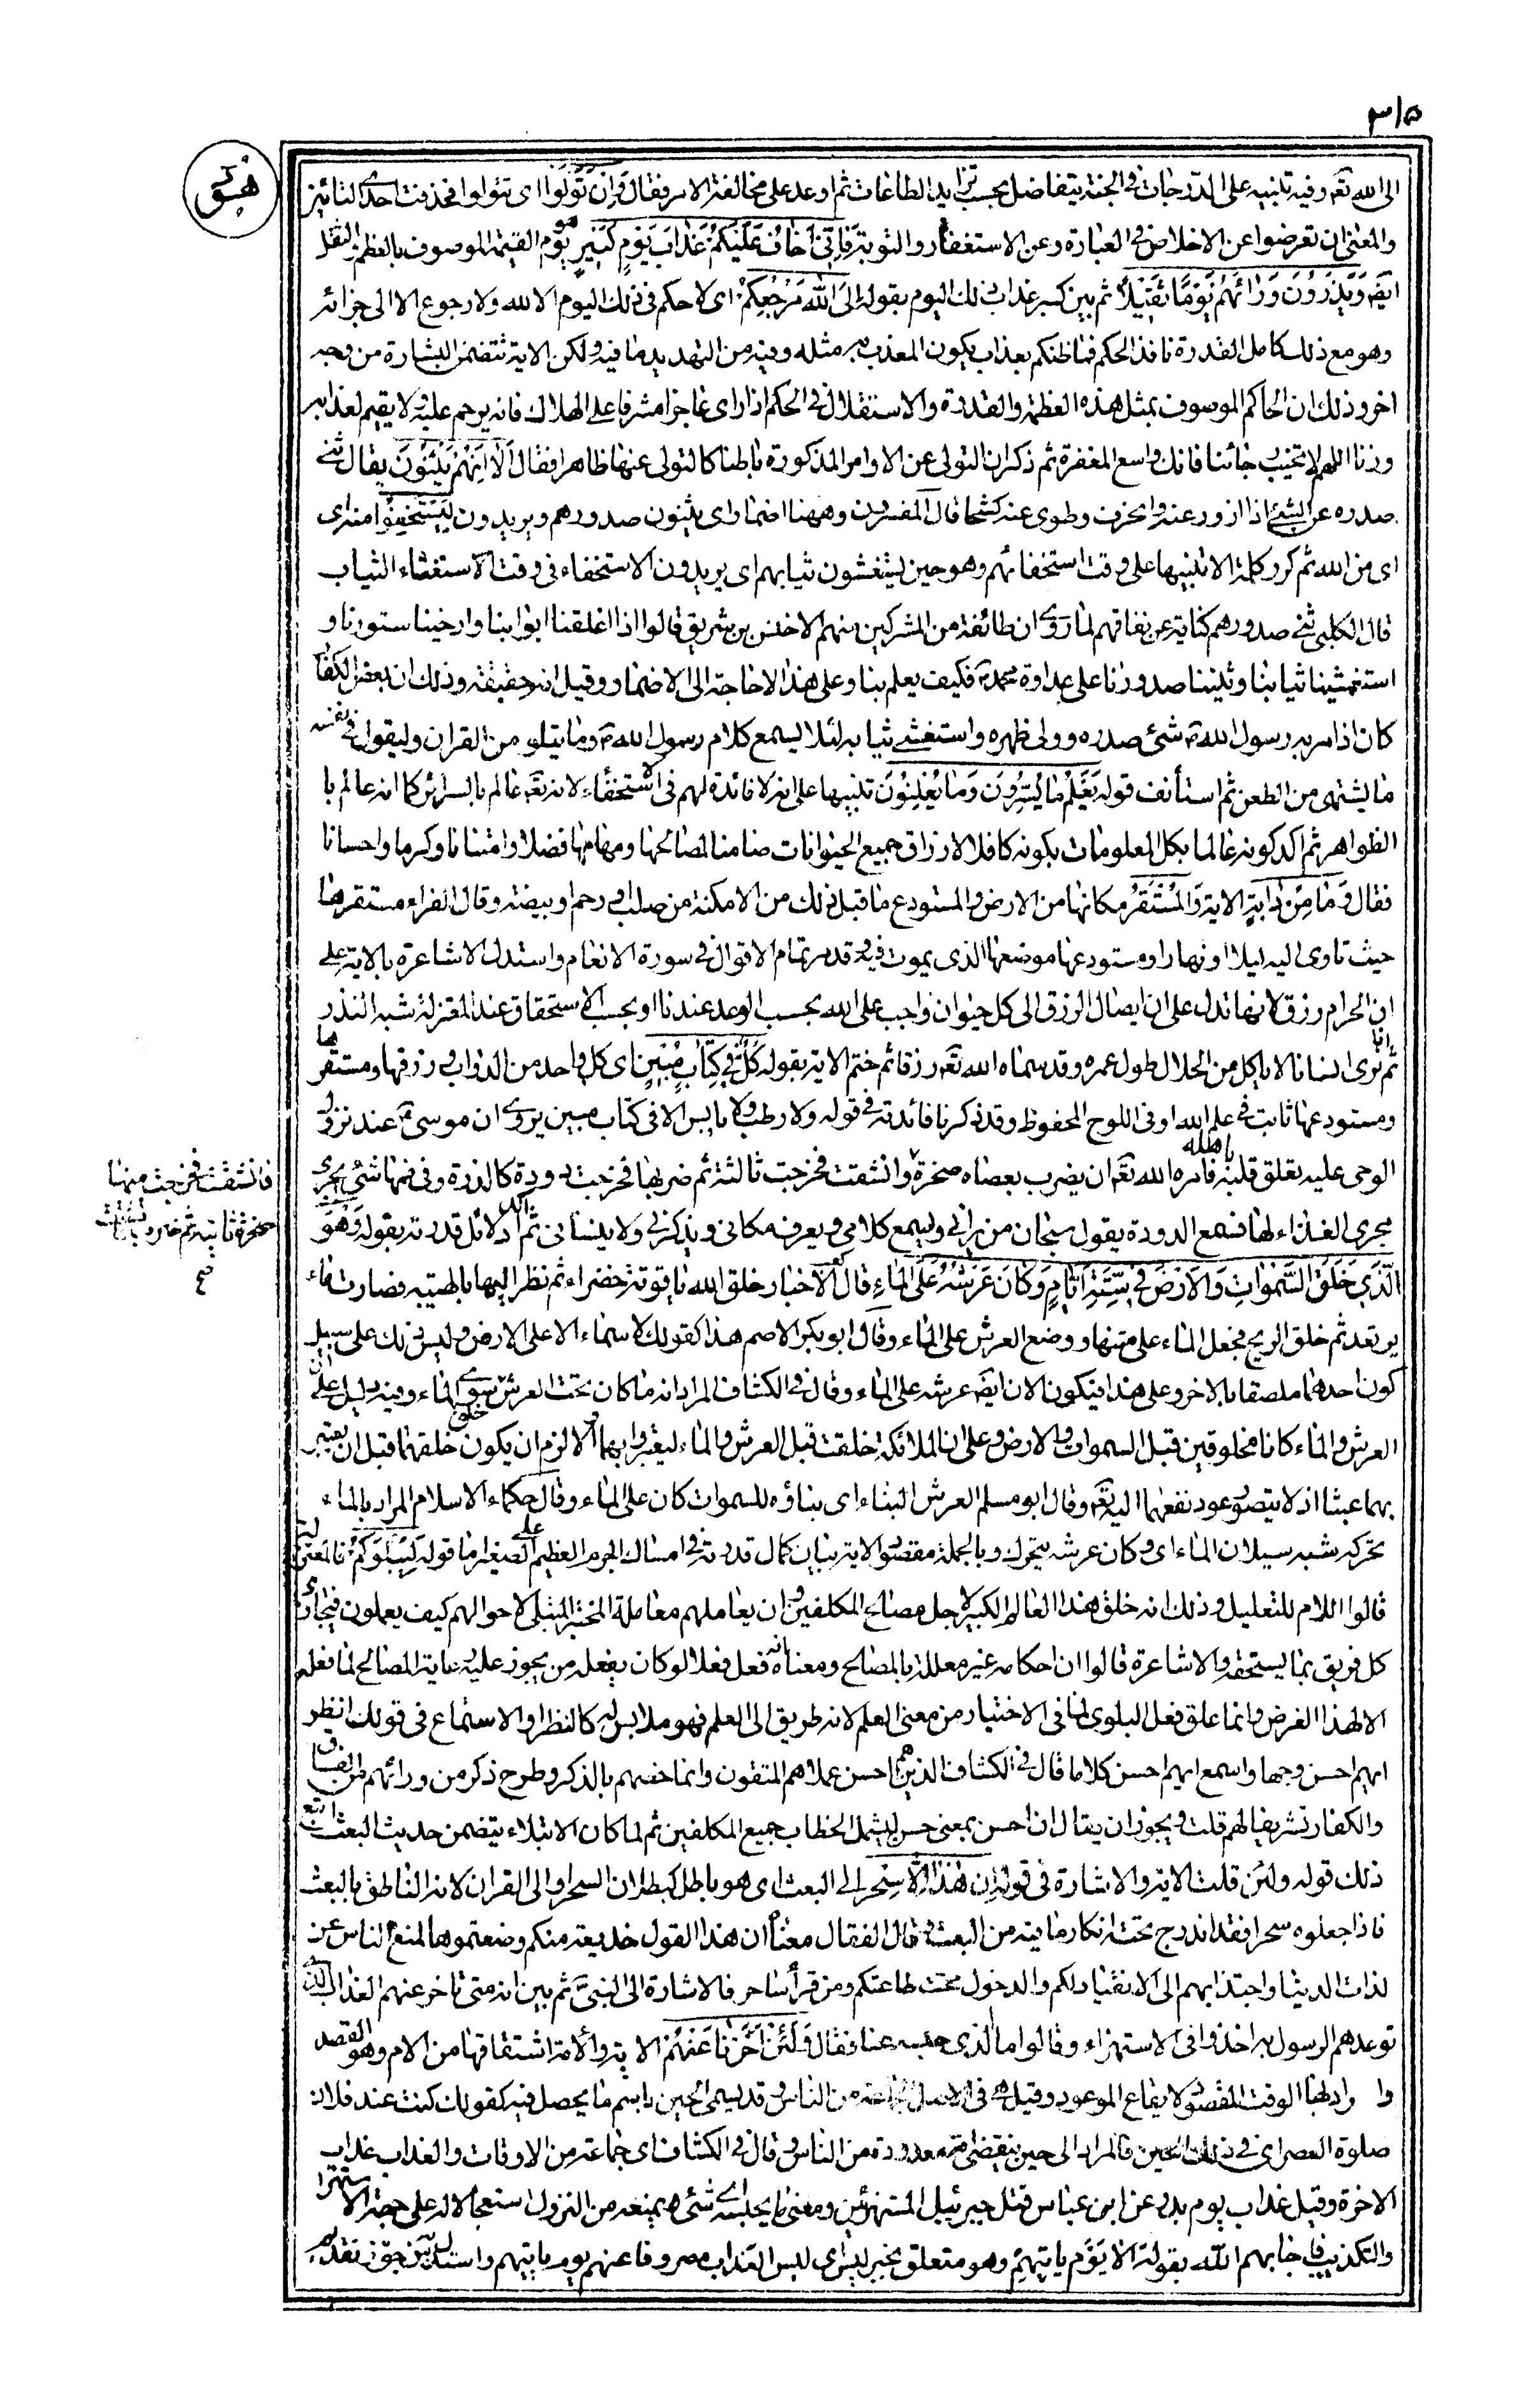 ٣١٥
هود
الى الله تعه وفيه تنبيه على الدرجات فى الجنة يتفاضل بحسب تزايد الطاعات ثم اوعد على مخالفة الامر فقال وَاِن تَوَلَّوا اى تتولوا فحذفت احدى التائين
والمعنى ان تعرضوا عن الاخلاص فى العبادة وعن الاستغفار والتوبة فَاِنّى اَخافُ عَلَيكُم عَذابَ يَومٍ كَبيرٍ هو يوم القيمة الموصوف بالعظم والثقل
ايضه وَيَذَرونَ وَرائَهُم يَومًا ثَقيلًا ثم بين كبر عذاب ذلك اليوم بقوله اِلَى اللهِ مَرجِعُكُم اى لا حكم فى ذلك اليوم الا لله ولا رجوع الا الى جزائه
وهو مع ذلك كامل القدرة نافذ الحكم فما ظنكم بعذاب يكون المعذب به مثله وفيه من التهديد ما فيه ولكن الاية تتضمن البشارة من وجه
اخر وذلك ان الحاكم الموصوف بمثل هذه العظمة والقدرة والاستقلال فى الحكم اذا راى عاجزا مشرفا على الهلاك فانه يرحم عليه ولا يقيم لعذابه
وزنا اللهم لا تخيب رجائنا فانك واسع المغفرة ثم ذكر ان التولى عن الاوامر المذكورة باطنا كالتولى عنها ظاهرا فقال اَلا اِنَّهُم يَثنُونَ يقال ثنى
صدره عن الشئ اذا ازور عنه وانحرف وطوى عنه كشحا قال المفسرون وههنا اضمار اى يثنون صدورهم ويريدون لِيَستَخفُوا منه اى
اى من الله ثم كرر كلمة الا تنبيها على وقت استخفائهم وهو حين يستغشون ثيابهم اى يريدون الاستخفاء فى وقت الاستغشاء الثياب
قال الكلبى ثنى صدورهم كناية عن نفاقهم لما روى ان طائفة من المشركين منهم الاخنس بن شريق قالوا اذا اغلقنا ابوابنا وارخينا ستورنا و
استغشينا ثيابنا وثنينا صدورنا على عداوة محمد فكيف يعلم بنا وعلى هذا لا حاجة الى الاضمار وقيل انه حقيقة وذلك ان بعض الكفار
كان اذا مر به رسول الله ص ثنى صدره وولى ظهره واستغشى ثيابه لئلا يسمع كلام رسول الله ص وما يتلو من القران وليقول فى نفسه
ما يشتهى من الطعن ثم استأنف قوله يَعلَمُ ما يُسِرُّونَ وَما يُعلِنُونَ تنبيها على انه لا فائدة لهم فى الاستخفاء لانه تعه عالم بالسرائر كما انه عالم با
الظواهر ثم اكد كونه عالما بكل المعلومات بكونه كافلا لارزاق جميع الحيوانات ضامنا لمصالحها ومهامها فضلا وامتنانا وكرما واحسانا
فقال وَما مِن دابَّةٍ الاية وَالمُستَقَرُّ مكانها من الارض والمستودع ما قبل ذلك من الامكنة من صلب او رحم او بيضة وقال الفراء مستقرها
حيث تاوى اليه ليلا او نهارا ومستودعها موضعها الذى يموت فيه وقد مر تمام الاقوال فى سورة الانعام واستدل الاشاعرة بالاية على
ان الحرام رزق لانها تدل على ان ايصال الرزق الى كل حيوان واجب على الله بحسب الوعد عندنا او بحسب الاستحقاق عند المعتزلة شبه النذر
ثم انا نرى انسانا لا ياكل من الحلال طول عمره وقد سماه الله تعه رزقا ثم ختم الاية بقوله كُلٌّ فى كِتابٍ مُبينٍ اى كل واحد من الدواب ورزقها ومستقرها
ومستودعها ثابت فى علم الله او فى اللوح المحفوظ وقد ذكرنا فائدته فى قوله ولا رطب ولا يابس الا فى كتاب مبين يروى ان موسى ع عند نزول
الوحى عليه تعلق قلبه باهله فامره الله تعه ان يضرب بعصاه صخرة وانشقت فخرجت ثالثة ثم ضربها فخرجت دودة كالذرة وفى فمها شئ يجرى
فانشقت فخرجت منها
صخرة ثانية ثم ضرب فانشقت
صح
مجرى الغذاء لها فسمع الدودة يقول سبحان من يرانى ويسمع كلامى ويعرف مكانى ويذكرنى ولا ينسانى ثم اكد دلائل قدرته بقوله وَهُوَ
الَّذى خَلَقَ السَّمواتِ وَالاَرضَ فى سِتَّةِ اَيّامٍ وَكانَ عَرشُهُ عَلَى الماءِ قال كعب الاحبار خلق الله ياقوتة خضراء ثم نظر اليها بالهيبة فصارت ماء
يرتعد ثم خلق الريح فجعل الماء على متنها ووضع العرش على الماء وقال ابو بكر الاصم هذا كقولك السماء الا على الارض وليس ذلك على سبيل
كون احدهما ملصقا بالاخر وعلى هذا فيكون الان ايضه عرشه على الماء وقال فى الكشاف المراد انه ما كان تحت العرش خلق سوى الماء وفيه دليل على ان
العرش والماء كانا مخلوقين قبل السموات والارض وعلى ان الملائكة خلقت قبل العرش والماء ليعتبروا بهما والا لزم ان يكون خلقهما قبل ان يعتبر
بهما عبثا اذ لا يتصور عود نفعهما اليه تعه وقال ابو مسلم العرش البناء اى بناؤه للسموات كان على الماء وقال حكماء الاسلام المراد بالماء
تحركه شبه سيلان الماء اى وكان عرشه يتحرك وبالجملة مقصود الاية بيان كمال قدرته فى امساك الجرم العظيم على الصغير اما قوله لِيَبلُوَكُم فالمعتزلة
قالوا اللام للتعليل وذلك انه خلق هذا العالم الكبير لاجل مصالح المكلفين وان يعاملهم معاملة المختبر المبتلى لاحوالهم كيف يعملون فيجازى
كل فريق بما يستحقه والاشاعرة قالوا ان احكامه غير معللة بالمصالح ومعناه انه فعل فعلا لو كان يفعله من يجوز عليه رعاية المصالح لما فعله
الا لهذا الغرض وانما علق فعل البلوى لما فى الاختبار من معنى العلم لانه طريق الى العلم فهو ملابس له كالنظر والاستماع فى قولك انظر
ايهم احسن وجها واسمع ايهم احسن كلاما قال فى الكشاف الذين هم احسن عملا هم المتقون وانما خصهم بالذكر وطرح ذكر من ورائهم من الفساق
والكفار تشريفا لهم قلت ويجوز ان يقال ان احسن بمعنى حسن ليشمل الخطاب جميع المكلفين ثم لما كان الابتلاء يتضمن حديث البعث اتبع
ذلك قوله ولئن قلت الاية والاشارة فى قوله اِن هذا اِلّا سِحرٌ الى البعث اى هو باطل كبطلان السحر او الى القران لانه الناطق بالبعث
فاذا جعلوه سحرا فقد اندرج تحته انكار ما فيه من البعث وقال القفال معناه ان هذا القول خديعة منكم وضعتموها لمنع الناس عن
لذات الدنيا واجتذابهم الى الانقياد لكم والدخول تحت طاعتكم ومن قرأ ساحر فالاشارة الى النبى ص ثم بين انه متى تاخر عنهم العذاب الذى
توعدهم الرسول به اخذوا فى الاستهزاء وقالوا ما الذى حبسه عنا فقال وَلَئِن اَخَّرنا عَنهُمُ الاية والامة اشتقاقها من الام وهو القصد
وا رادها الوقت المقصود لايقاع الموعود وقيل هى فى الاصل الجماعة من الناس وقد يسمى الحين باسم ما يحصل فيه كقولك كنت عند فلان
صلوة العصر اى فى ذلك الحين فالمراد الى حين ينقضى امة معدودة من الناس وقال فى الكشاف اى جماعة من الاوقات والعذاب عذاب
الاخرة وقيل عذاب يوم بدر عن ابن عباس قتل جبرئيل المستهزئين ومعنى ما يحبسه اى شئ يمنعه من النزول استعجالا له على جهة الاستهزاء
والتكذيب فاجابهم الله بقوله اَلا يَومَ يَأتيهِم وهو متعلق بخبر ليس اى ليس العذاب مصروفا عنهم يوم ياتيهم واستدل به من جوز تقديم